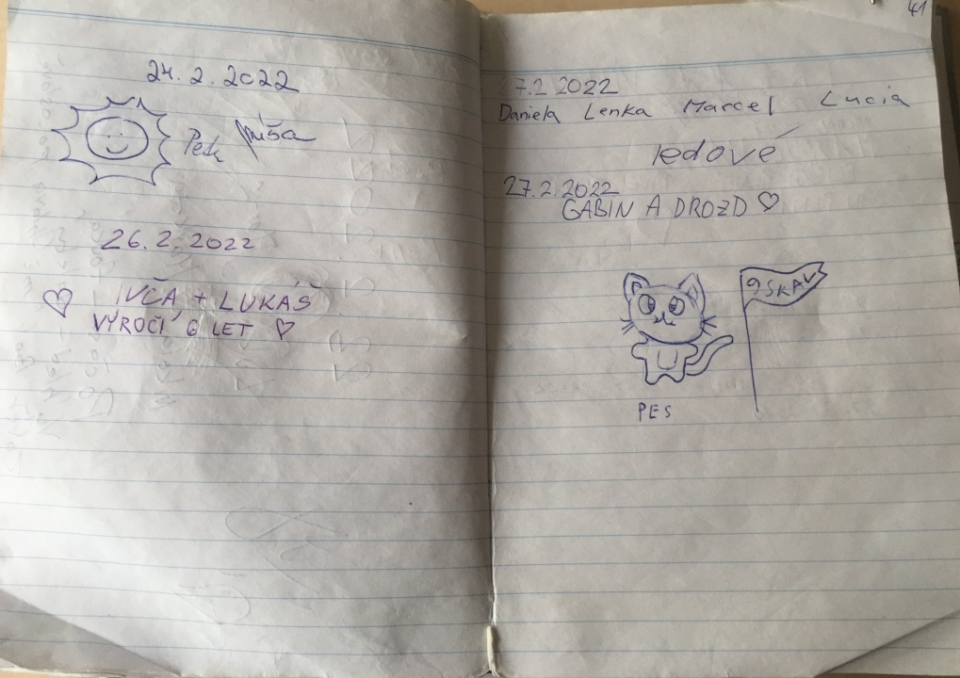 24. 2. 2022
Petr Míša
26. 2. 2022
IVČA + LUKÁŠ
VÝROČÍ 6 LET
41
27.2 2022
Daniela Lenka Marcel Lucia
ledové
27.2.2022
GABIN A DROZD
9SKAU
PES